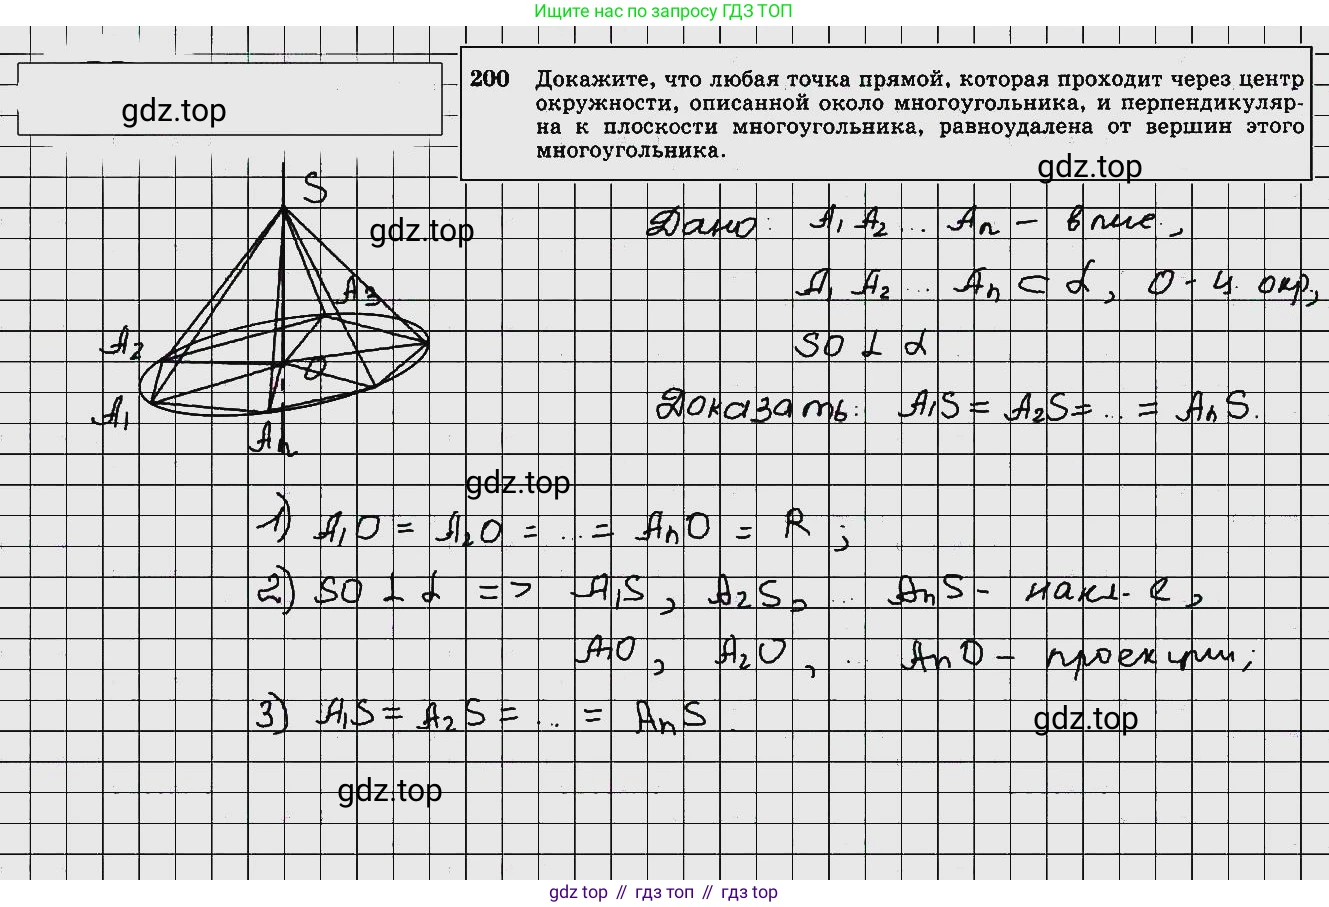 Ищите нас по запросу ГДЗ ТОП
gdz.top
200 Докажите, что любая точка прямой, которая проходит через центр
окружности, описанной около многоугольника, и перпендикуляр-
на к плоскости многоугольника, равноудалена от вершин этого
многоугольника.
gdz.top
S
gdz.top
A₃
A₂
O
A₁
Aₙ
Дано: A₁ A₂ ... Aₙ – впис.,
A₁ A₂ ... Aₙ ⊂ α, O – ц. окр.,
SO ⊥ α
Доказать: A₁S = A₂S = ... = AₙS.
gdz.top
1) A₁O = A₂O = ... = AₙO = R ;
2) SO ⊥ α => A₁S, A₂S, ... AₙS – накл-е,
A₁O, A₂O, ... AₙO – проекции;
3) A₁S = A₂S = ... = AₙS.
gdz.top
gdz.top
gdz top // гдз топ // гдз top